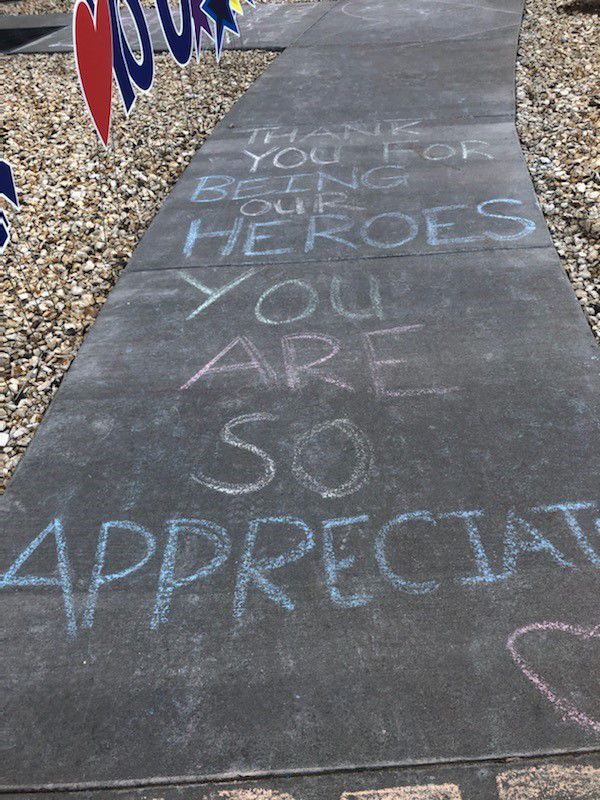 YOU
THANK
YOU FOR
BEING
OUR
HEROES
YOU
ARE
SO
APPRECIAT